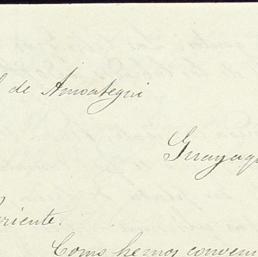 de Amoategui
Guayaq
riente.
Como hemos conven